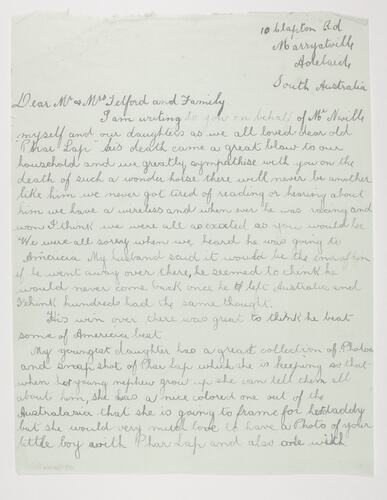 10 Clapton Rd
Marryatville
Adelaide
South Australia
Dear Mr & Mrs Telford and Family
I am writing to you on behalf of Mr Neville
myself and our daughters as we all loved dear old
"Phar Lap" his death came a great blow to our
household and we greatly sympathise with you on the
death of such a wonder horse there will never be another
like him we never got tired of reading or hearing about
him we have a wireless and when ever he was racing and
won I think we were all as excited as you would be
We were all sorry when we heard he was going to
America My husband said it would be the end of him
if he went away over there, he seemed to think he
would never come back once he left Australia and
I think hundreds had the same thought.
His win over there was great to think he beat
some of America best
My youngest daughter has a great collection of Photos
and snap shot of Phar Lap which she is keeping so that
when her young nephew grow up she can tell them all
about him, she has a nice colored one out of the
Australasia that she is going to frame for her daddy
but she would very much love to have a Photo of your
little boy with Phar Lap and also one with